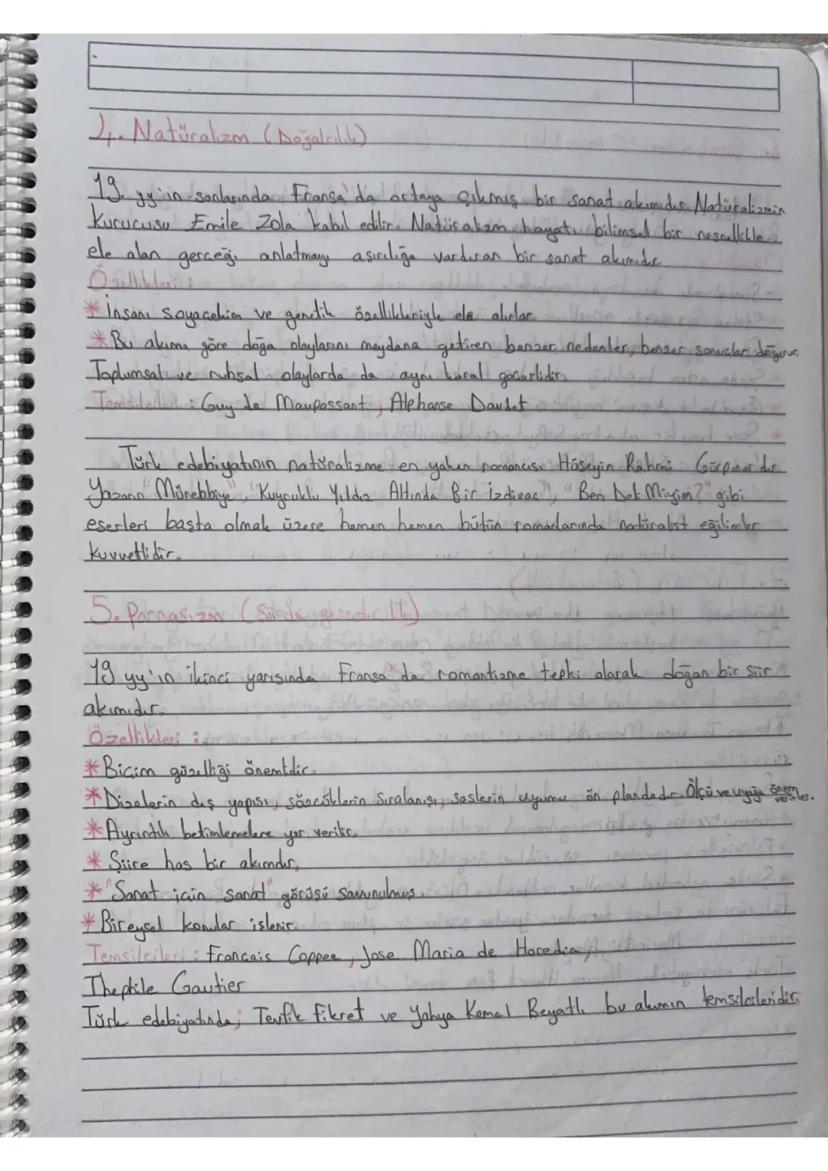 4. Natüralizm (Doğalcılık)
19. yy'ın sonlarında Fransa'da ortaya çıkmış bir sanat akımıdır. Natüralizmin
kurucusu Emile Zola kabul edilir. Natüralizm hayatı bilimsel bir nesnellikle
ele alan gerçeği anlatmayı aşırılığa vardıran bir sanat akımıdır.
Özellikleri :
* İnsanı soyaçekim ve genetik özellikleriyle ele alırlar.
* Bu akıma göre doğa olaylarını meydana getiren benzer nedenler, benzer sonuçları doğurur.
Toplumsal ve ruhsal olaylarda da aynı kural geçerlidir.
Temsilcileri : Guy de Maupassant, Alphonse Daudet
Türk edebiyatının natüralizme en yakın romancısı Hüseyin Rahmi Gürpınar'dır.
Yazarın "Mürebbiye", "Kuyruklu Yıldız Altında Bir İzdivaç", "Ben Deli Miyim?" gibi
eserleri başta olmak üzere hemen hemen bütün romanlarında natüralist eğilimler
kuvvetlidir.
5. Parnasizm (Şiirde gerçekçilik)
19 yy'ın ikinci yarısında Fransa'da romantizme tepki olarak doğan bir şiir
akımıdır.
Özellikleri :
* Biçim güzelliği önemlidir.
* Dizelerin dış yapısı, sözcüklerin sıralanışı, seslerin uyumu ön plandadır. Ölçü ve uyağa önem verirler.
* Ayrıntılı betimlemelere yer verilir.
* Şiire has bir akımdır.
* "Sanat için sanat" görüşü savunulmuş.
* Bireysel konular işlenir.
Temsilcileri : Francais Coppee, Jose Maria de Heredia,
Thephile Gautier
Türk edebiyatında; Tevfik Fikret ve Yahya Kemal Beyatlı bu akımın temsilcileridir.